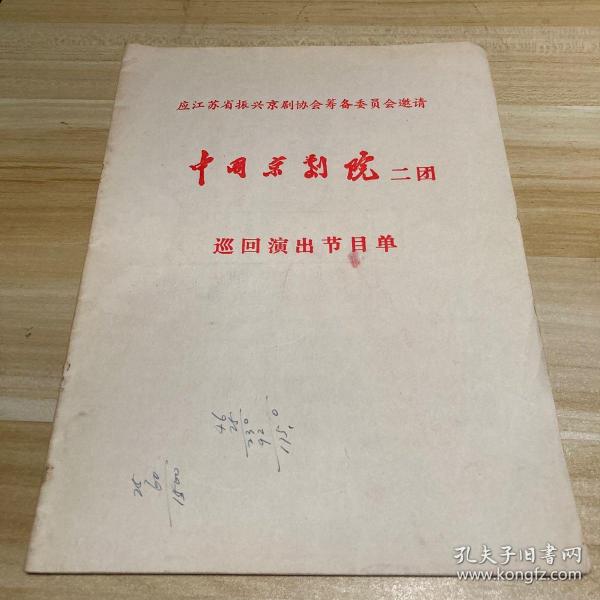 应江苏省振兴京剧协会筹备委员会邀请
中国京剧院 二团
巡回演出节目单
46
25
230
92
1150
25
60
1500
孔夫子旧书网
www.kongfz.com